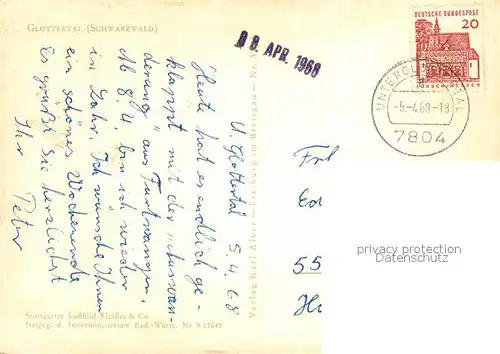 GLOTTERTAL (SCHWARZWALD)
08. APR. 1968
DEUTSCHE BUNDESPOST
20
LORSCH/HESSEN
-5.-4.68-18
7804
U. Glottertal 5.4.68
Heute hat es endlich ge-
klappt mit der "Auswan-
derung" aus Furtwangen.
Ab 8.4. bin ich wieder
in Lahr. Ich wünsche Ihnen
ein schönes Wochenende
Es grüßt Sie herzlichst
Ihr Peter
Frl
55
privacy protection
watermark
Verlag Karl Alber - Freiburg im Breisgau - Nr.
Stuttgarter Luftbild Elsäßer & Co.
freigeg. d. Innenministerium Bad.-Württ. Nr. 9/21645